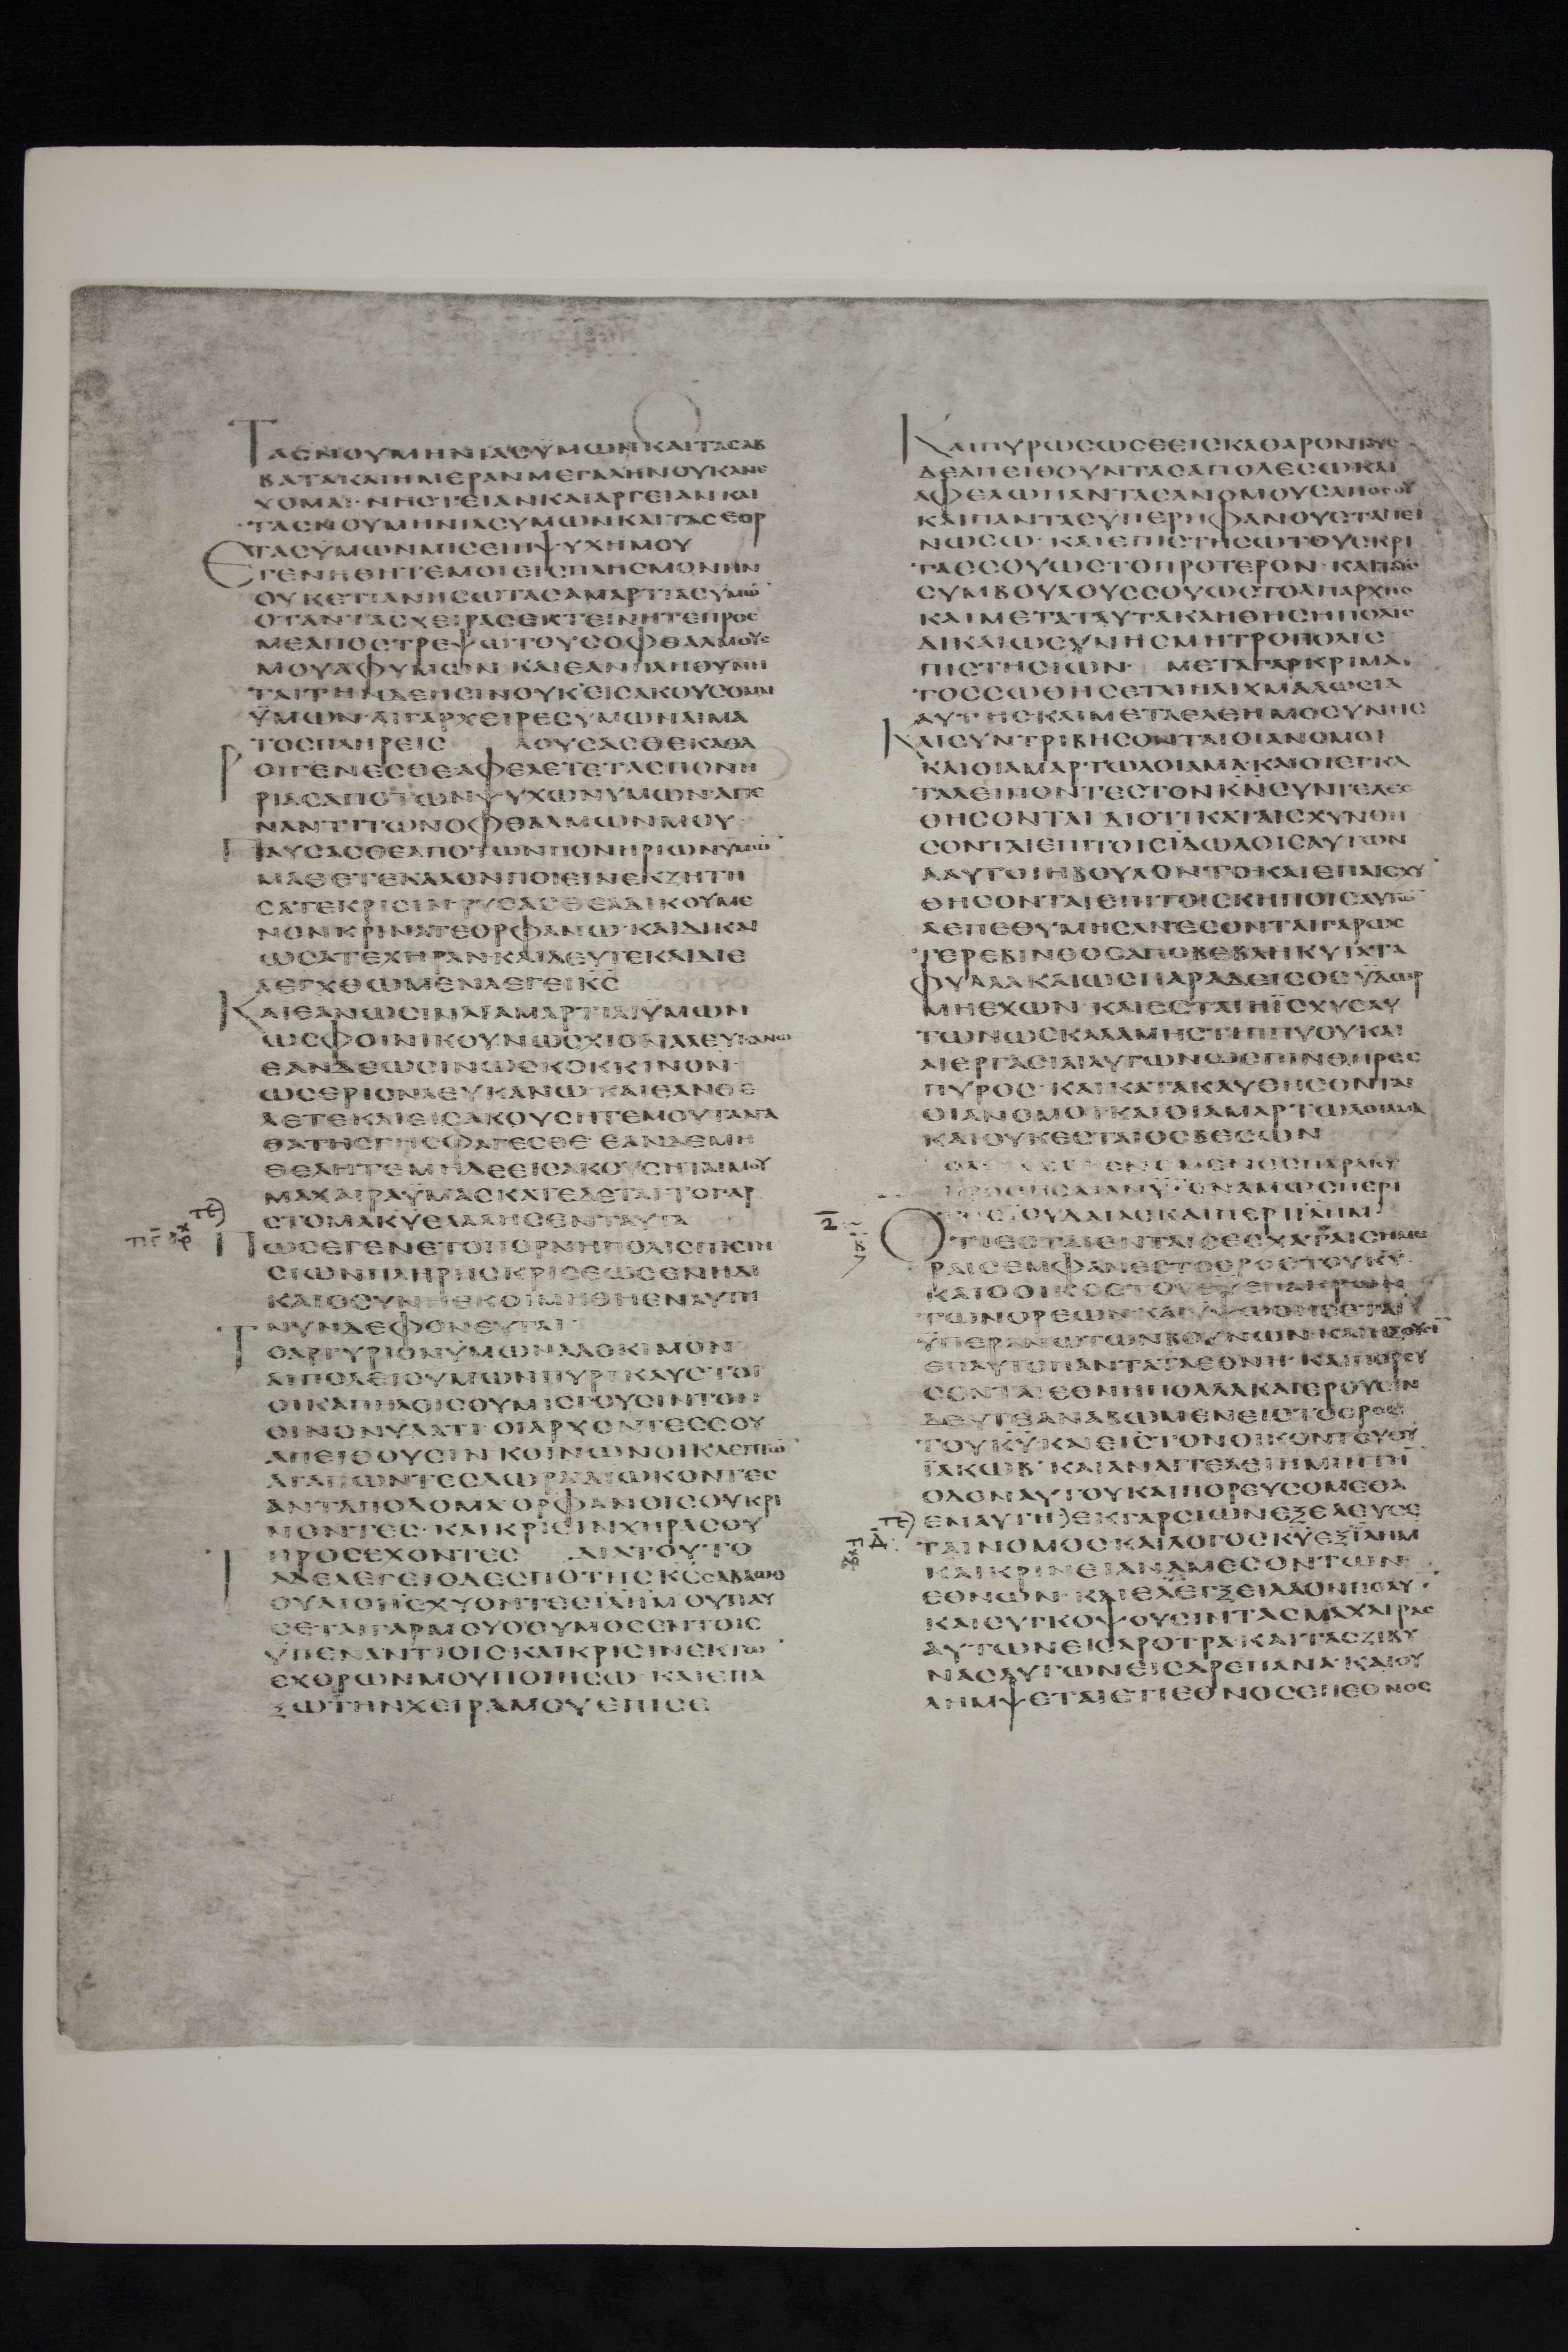 ΤΑϹΝΟΥΜΗΝΙΑϹΫΜΩΝΚΑΙΤΑϹΑΒ
ΒΑΤΑΚΑΙΗΜΕΡΑΝΜΕΓΑΛΗΝΟΥΚΑΝΕ
ΧΟΜΑΙ·ΝΗϹΤΕΙΑΝΚΑΙΑΡΓΕΙΑΝΚΑΙ
ΤΑϹΝΟΥΜΗΝΙΑϹΥΜΩΝΚΑΙΤΑϹΕΟΡ
ΤΑϹΫΜΩΝΜΙϹΕΙΗΨΥΧΗΜΟΥ
ΕΓΕΝΗΘΗΤΕΜΟΙΕΙϹΠΛΗϹΜΟΝΗΝ
ΟΥΚΕΤΙΑΝΗϹΩΤΑϹΑΜΑΡΤΙΑϹΥΜΩ̅
ΟΤΑΝΤΑϹΧΕΙΡΑϹΕΚΤΕΙΝΗΤΕΠΡΟϹ
ΜΕΑΠΟϹΤΡΕΨΩΤΟΥϹΟΦΘΑΛΜΟΥϹ
ΜΟΥΑΦΥΜΩΝ·ΚΑΙΕΑΝΠΛΗΘΥΝΗ
ΤΑΙΤΗΝΔΕΗϹΙΝΟΥΚΕΙϹΑΚΟΥϹΟΜΑΙ
ΫΜΩΝ·ΑΙΓΑΡΧΕΙΡΕϹΥΜΩΝΑΙΜΑ
ΤΟϹΠΛΗΡΕΙϹ ΛΟΥϹΑϹΘΕΚΑΘΑ
ΡΟΙΓΕΝΕϹΘΕΑΦΕΛΕΤΕΤΑϹΠΟΝΗ
ΡΙΑϹΑΠΟΤΩΝΨΥΧΩΝΥΜΩΝ·ΑΠΕ
ΝΑΝΤΙΤΩΝΟΦΘΑΛΜΩΝΜΟΥ
ΠΑΥϹΑϹΘΕΑΠΟΤΩΝΠΟΝΗΡΙΩΝΥΜΩ̅
ΜΑΘΕΤΕΚΑΛΟΝΠΟΙΕΙΝΕΚΖΗΤΗ
ϹΑΤΕΚΡΙϹΙΝ·ΡΥϹΑϹΘΕΑΔΙΚΟΥΜΕ
ΝΟΝΚΡΙΝΑΤΕΟΡΦΑΝΩ·ΚΑΙΔΙΚΑΙ
ΩϹΑΤΕΧΗΡΑΝ·ΚΑΙΔΕΥΤΕΚΑΙΔΙΕ
ΛΕΓΧΘΩΜΕΝΛΕΓΕΙΚ̅Ϲ̅
ΚΑΙΕΑΝΩϹΙΝΑΙΑΜΑΡΤΙΑΙΫΜΩΝ
ΩϹΦΟΙΝΙΚΟΥΝΩϹΧΙΟΝΑΛΕΥΚΑΝΩ
ΕΑΝΔΕΩϹΙΝΩϹΚΟΚΚΙΝΟΝ
ΩϹΕΡΙΟΝΛΕΥΚΑΝΩ·ΚΑΙΕΑΝΘΕ
ΛΕΤΕΚΑΙΕΙϹΑΚΟΥϹΗΤΕΜΟΥΤΑΓΑ
ΘΑΤΗϹΓΗϹΦΑΓΕϹΘΕ·ΕΑΝΔΕΜΗ
ΘΕΛΗΤΕΜΗΔΕΕΙϹΑΚΟΥϹΗΤΑΙΜΟΥ
ΜΑΧΑΙΡΑΫΜΑϹΚΑΤΕΔΕΤΑΙ·ΤΟΓΑΡ
ϹΤΟΜΑΚ̅Υ̅ΕΛΑΛΗϹΕΝΤΑΥΤΑ
ΠΩϹΕΓΕΝΕΤΟΠΟΡΝΗΠΟΛΙϹΠΙϹΤΗ
ϹΙΩΝΠΛΗΡΗϹΚΡΙϹΕΩϹΕΝΗΔΙ
ΚΑΙΟϹΥΝΗΕΚΟΙΜΗΘΗΕΝΑΥΤΗ
ΝΥΝΔΕΦΟΝΕΥΤΑΙ
ΤΟΑΡΓΥΡΙΟΝΫΜΩΝΑΔΟΚΙΜΟΝ
ΟΙΚΑΠΗΛΟΙϹΟΥΜΙϹΓΟΥϹΙΝΤΟΝ
ΟΙΝΟΝΥΔΑΤΙ·ΟΙΑΡΧΟΝΤΕϹϹΟΥ
ΑΠΕΙΘΟΥϹΙΝ·ΚΟΙΝΩΝΟΙΚΛΕΠΤΩ̅
ΑΓΑΠΩΝΤΕϹΔΩΡΑΔΙΩΚΟΝΤΕϹ
ΑΝΤΑΠΟΔΟΜΑ·ΟΡΦΑΝΟΙϹΟΥΚΡΙ
ΝΟΝΤΕϹ·ΚΑΙΚΡΙϹΙΝΧΗΡΑϹΟΥ
ΠΡΟϹΕΧΟΝΤΕϹ ΔΙΑΤΟΥΤΟ
ΤΑΔΕΛΕΓΕΙΟΔΕϹΠΟΤΗϹΚ̅Ϲ̅ϹΑΒΑΩΘ
ΟΥΑΙΟΙΙϹΧΥΟΝΤΕϹΙ̅Η̅Λ̅ΜΟΥΠΑΥ
ϹΕΤΑΙΓΑΡΜΟΥΟΘΥΜΟϹΕΝΤΟΙϹ
ΫΠΕΝΑΝΤΙΟΙϹΚΑΙΚΡΙϹΙΝΕΚΤΩ̅
ΕΧΘΡΩΝΜΟΥΠΟΙΗϹΩ·ΚΑΙΕΠΑ
ΞΩΤΗΝΧΕΙΡΑΜΟΥΕΠΙϹΕ
ΚΑΙΠΥΡΩϹΩϹΕΕΙϹΚΑΘΑΡΟΝΤΟΥϹ
ΔΕΑΠΕΙΘΟΥΝΤΑϹΑΠΟΛΕϹΩΚΑΙ
ΑΦΕΛΩΠΑΝΤΑϹΑΝΟΜΟΥϹΑΠΟϹΟΥ
ΚΑΙΠΑΝΤΑϹΥΠΕΡΗΦΑΝΟΥϹΤΑΠΕΙ
ΝΩϹΩ·ΚΑΙΕΠΙϹΤΗϹΩΤΟΥϹΚΡΙ
ΤΑϹϹΟΥΩϹΤΟΠΡΟΤΕΡΟΝ·ΚΑΙΤΟΥϹ
ϹΥΜΒΟΥΛΟΥϹϹΟΥΩϹΤΟΑΠΑΡΧΗϹ
ΚΑΙΜΕΤΑΤΑΥΤΑΚΛΗΘΗϹΗΠΟΛΙϹ
ΔΙΚΑΙΩϹΥΝΗϹΜΗΤΡΟΠΟΛΙϹ
ΠΙϹΤΗϹΙΩΝ· ΜΕΤΑΓΑΡΚΡΙΜΑ
ΤΟϹϹΩΘΗϹΕΤΑΙΗΑΙΧΜΑΛΩϹΙΑ
ΑΥΤΗϹ·ΚΑΙΜΕΤΑΕΛΕΗΜΟϹΥΝΗϹ
ΚΑΙϹΥΝΤΡΙΒΗϹΟΝΤΑΙΟΙΑΝΟΜΟΙ
ΚΑΙΟΙΑΜΑΡΤΩΛΟΙΑΜΑ·ΚΑΙΟΙΕΓΚΑ
ΤΑΛΕΙΠΟΝΤΕϹΤΟΝΚ̅Ν̅ϹΥΝΤΕΛΕϹ
ΘΗϹΟΝΤΑΙ ΔΙΟΤΙΚΑΤΑΙϹΧΥΝΘΗ
ϹΟΝΤΑΙΕΠΙΤΟΙϹΙΔΩΛΟΙϹΑΥΤΩΝ
ΑΑΥΤΟΙΗΒΟΥΛΟΝΤΟ·ΚΑΙΕΠΑΙϹΧΥ̅
ΘΗϹΟΝΤΑΙΕΠΙΤΟΙϹΚΗΠΟΙϹΑΥΤΩ̅
ΑΕΠΕΘΥΜΗϹΑΝ·ΕϹΟΝΤΑΙΓΑΡΩϹ
ΤΕΡΕΒΙΝΘΟϹΑΠΟΒΕΒΛΗΚΥΙΑΤΑ
ΦΥΛΛΑΚΑΙΩϹΠΑΡΑΔΕΙϹΟϹΥΔΩΡ
ΜΗΕΧΩΝ·ΚΑΙΕϹΤΑΙΗΪϹΧΥϹΑΥ
ΤΩΝΩϹΚΑΛΑΜΗϹΤΙΠΠΥΟΥΚΑΙ
ΑΙΕΡΓΑϹΙΑΙΑΥΤΩΝΩϹϹΠΙΝΘΗΡΕϹ
ΠΥΡΟϹ·ΚΑΙΚΑΤΑΚΑΥΘΗϹΟΝΤΑΙ
ΟΙΑΝΟΜΟΙΚΑΙΟΙΑΜΑΡΤΩΛΟΙΑΜΑ
ΚΑΙΟΥΚΕϹΤΑΙΟϹΒΕϹΩΝ
ΟΤΙΕϹΤΑΙΕΝΤΑΙϹΕϹΧΑΤΑΙϹΗΜΕ
ΡΑΙϹΕΜΦΑΝΕϹΤΟΟΡΟϹΤΟΥΚ̅Υ̅
ΫΠΕΡΑΝΩΤΩΝΒΟΥΝΩΝ·ΚΑΙΗΞΟΥϹΙ̅
ΕΠΑΥΤΟΠΑΝΤΑΤΑΕΘΝΗ·ΚΑΙΠΟΡΕΥ
ϹΟΝΤΑΙΕΘΝΗΠΟΛΛΑΚΑΙΕΡΟΥϹΙΝ
ΔΕΥΤΕΑΝΑΒΩΜΕΝΕΙϹΤΟΟΡΟϹ
ΤΟΥΚ̅Υ̅ΚΑΙΕΙϹΤΟΝΟΙΚΟΝΤΟΥΘ̅Υ̅
ΪΑΚΩΒ·ΚΑΙΑΝΑΓΓΕΛΕΙΗΜΙΝΤΗ̅
ΟΔΟΝΑΥΤΟΥΚΑΙΠΟΡΕΥϹΟΜΕΘΑ
ΕΝΑΥΤΗ)ΕΚΓΑΡϹΙΩΝΕΞΕΛΕΥϹΕ
ΤΑΙΝΟΜΟϹΚΑΙΛΟΓΟϹΚ̅Υ̅ΕΞΙ̅Λ̅Η̅Μ̅
ΚΑΙΚΡΙΝΕΙΑΝΑΜΕϹΟΝΤΩΝ
ΕΘΝΩΝ·ΚΑΙΕΛΕΓΞΕΙΛΑΟΝΠΟΛΥ
ΚΑΙϹΥΓΚΟΨΟΥϹΙΝΤΑϹΜΑΧΑΙΡΑϹ
ΑΥΤΩΝΕΙϹΑΡΟΤΡΑ·ΚΑΙΤΑϹΖΙΒΥ
ΝΑϹΑΥΤΩΝΕΙϹΔΡΕΠΑΝΑ·ΚΑΙΟΥ
ΛΗΜΨΕΤΑΙΕΤΙΕΘΝΟϹΕΠΕΘΝΟϹ